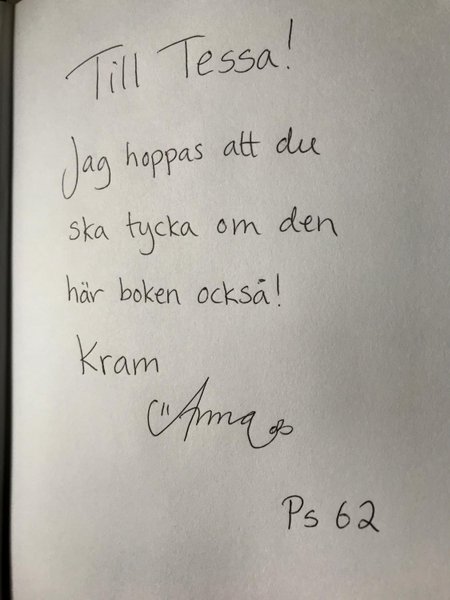 Till Tessa!
Jag hoppas att du
ska tycka om den
här boken också!
Kram
Anna
Ps 62